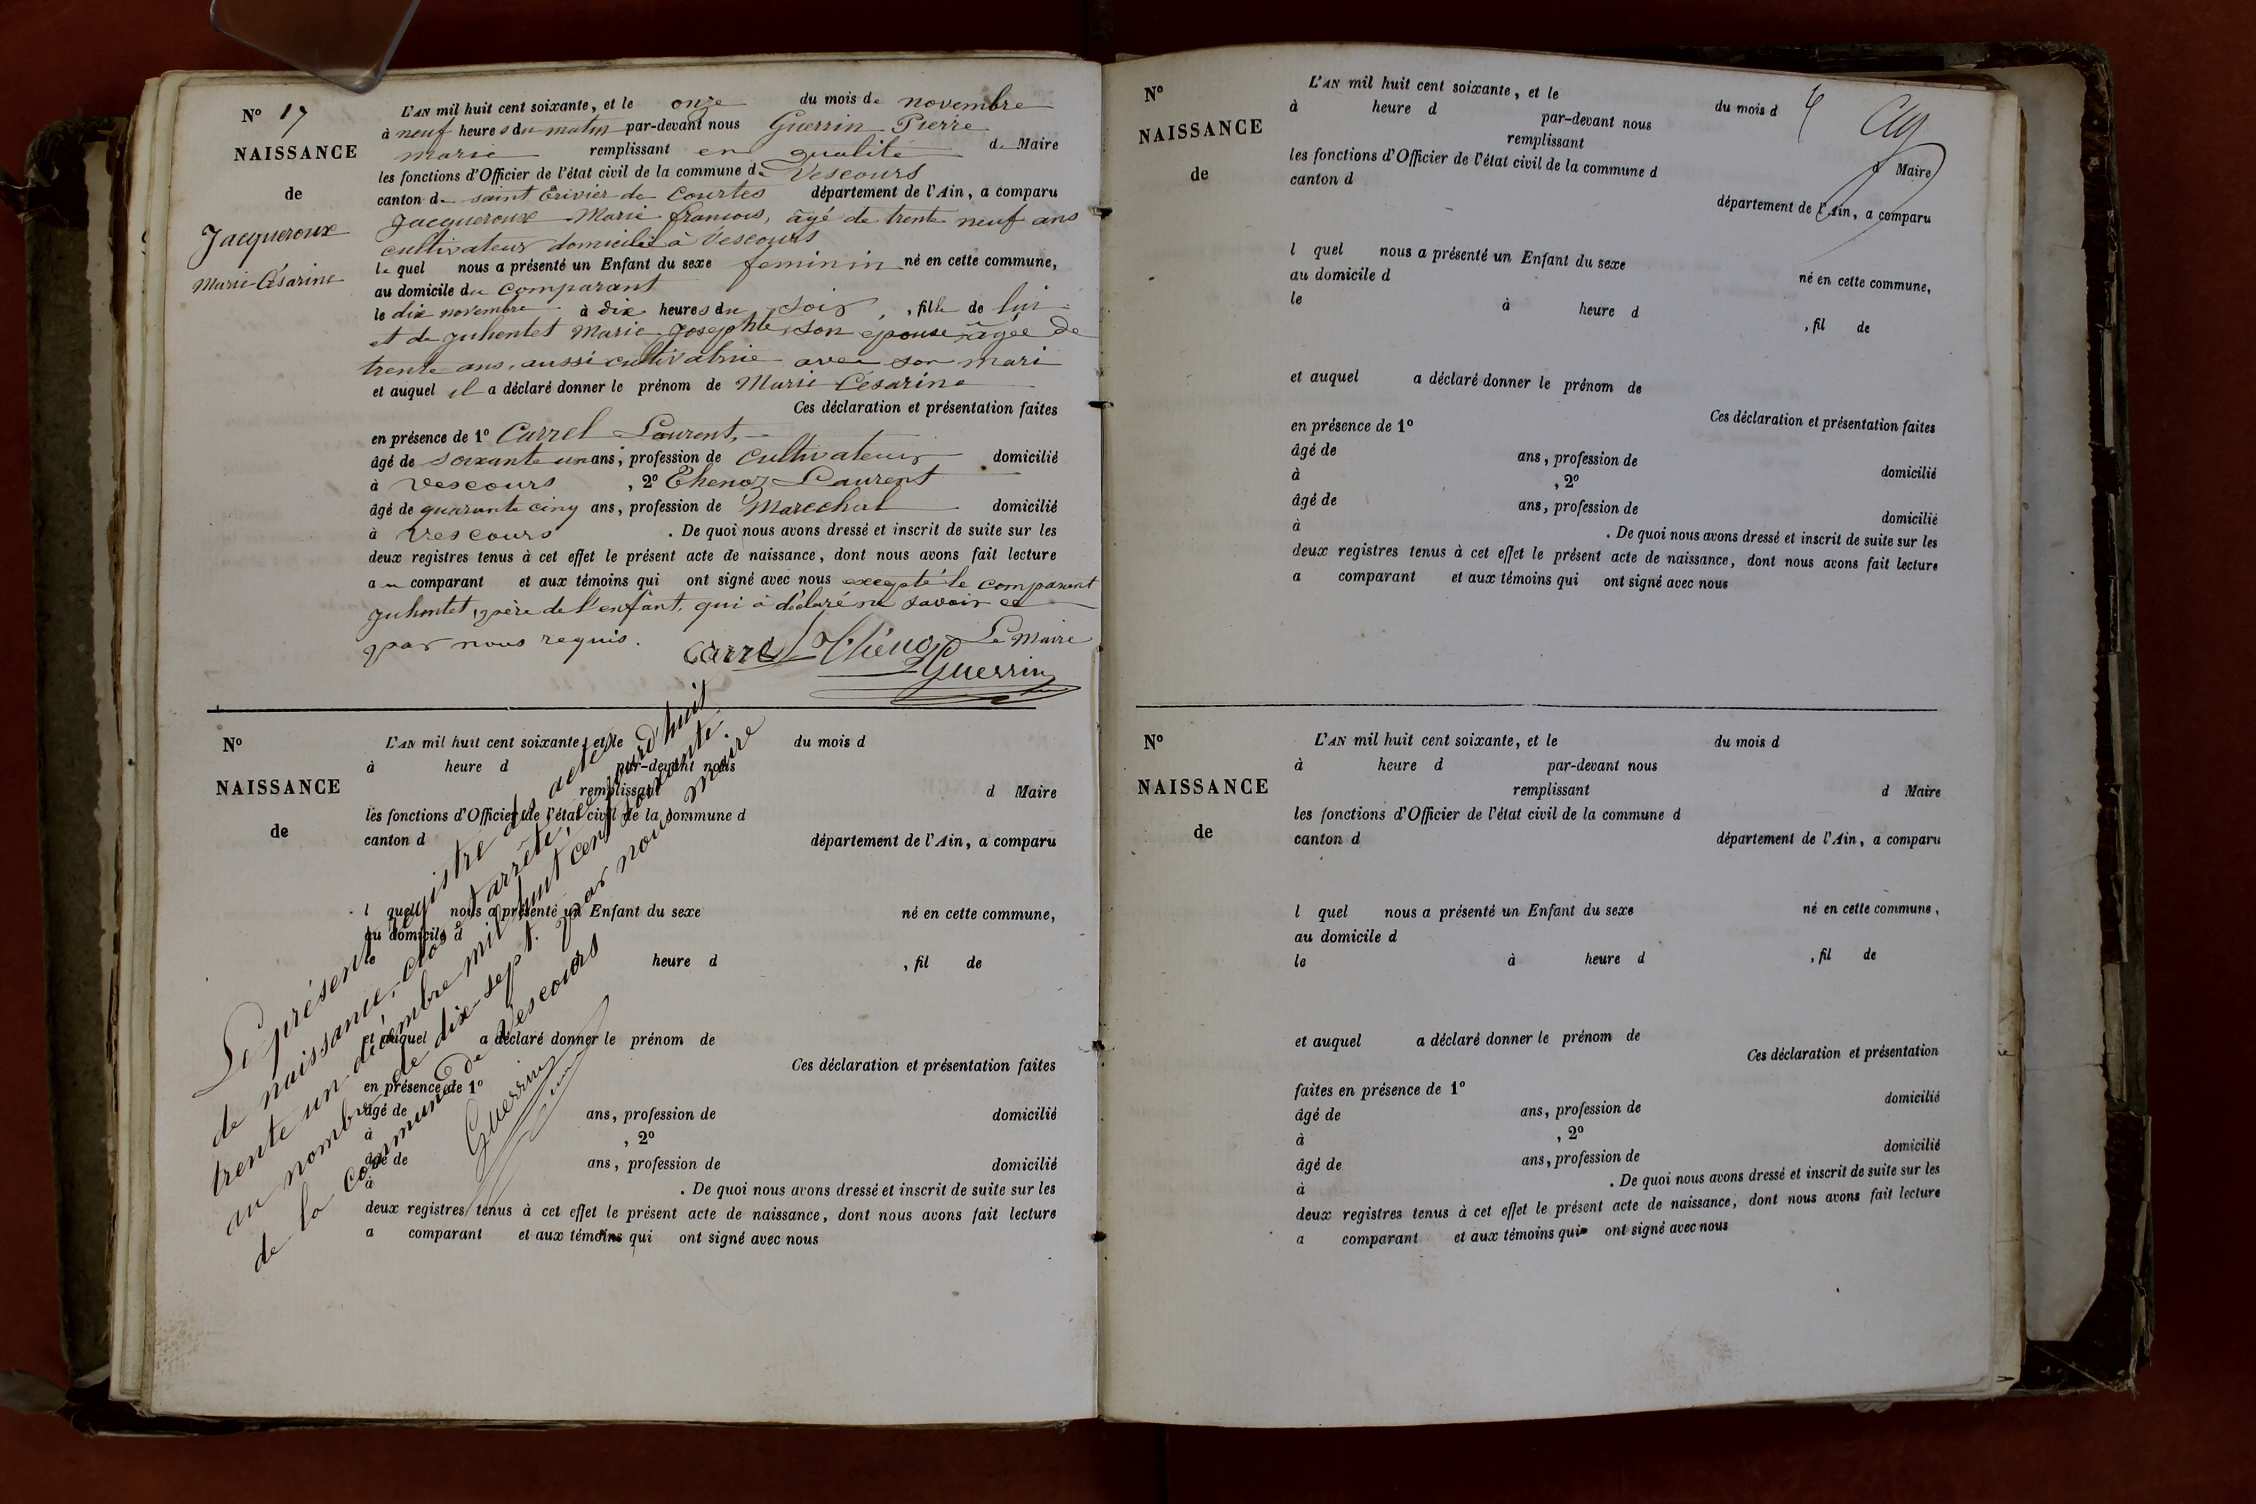 N° 17
NAISSANCE
de
Jacqueroux
Marie Césarine
L'AN mil huit cent soixante, et le onze du mois de novembre
à neuf heures du matin par-devant nous Guerrin Pierre
marie remplissant en qualité de Maire
les fonctions d'Officier de l'état civil de la commune de Vescours
canton de saint Trivier de Courtes département de l'Ain, a comparu
Jacqueroux Marie françois, âgé de trente neuf ans
cultivateur domicilié à Vescours
le quel nous a présenté un Enfant du sexe feminin né en cette commune,
au domicile du comparant
le dix novembre à dix heures du soir, fille de lui
et de Juhentet Marie Josephte son épouse âgée de
trente ans, aussi cultivatrice avec son mari
et auquel il a déclaré donner le prénom de Marie Césarine
Ces déclaration et présentation faites
en présence de 1° Carrel Laurent,
âgé de soixante un ans, profession de cultivateur domicilié
à Vescours, 2° Thenoz Laurent
âgé de quarante cinq ans, profession de Marechal domicilié
à Vescours. De quoi nous avons dressé et inscrit de suite sur les
deux registres tenus à cet effet le présent acte de naissance, dont nous avons fait lecture
au comparant et aux témoins qui ont signé avec nous excepté le comparant
Juhentet, père de l'enfant, qui a déclaré ne savoir ce
par nous requis.
Carrel L Thénoz Le Maire
Guerrin
N°
NAISSANCE
de
L'AN mil huit cent soixante, et le du mois d
à heure d par-devant nous
remplissant d Maire
les fonctions d'Officier de l'état civil de la commune d
canton d département de l'Ain, a comparu
l quel nous a présenté un Enfant du sexe né en cette commune,
au domicile d
heure d , fil de
et auquel a déclaré donner le prénom de
Ces déclaration et présentation faites
en présence de 1°
âgé de ans, profession de domicilié
à , 2°
âgé de ans, profession de domicilié
à . De quoi nous avons dressé et inscrit de suite sur les
deux registres tenus à cet effet le présent acte de naissance, dont nous avons fait lecture
a comparant et aux témoins qui ont signé avec nous
Le présent registre des actes
de naissance, clos et arrêté, ce jourd'huit
trente un décembre mil huit cent soixante.
au nombre de dix-sept. par nous maire
de la commune de Vescours
Guerrin
N°
NAISSANCE
de
L'AN mil huit cent soixante, et le du mois d
à heure d par-devant nous
remplissant d Maire
les fonctions d'Officier de l'état civil de la commune d
canton d département de l'Ain, a comparu
l quel nous a présenté un Enfant du sexe né en cette commune,
au domicile d
le à heure d , fil de
et auquel a déclaré donner le prénom de
Ces déclaration et présentation faites
en présence de 1°
âgé de ans, profession de domicilié
à , 2°
âgé de ans, profession de domicilié
à . De quoi nous avons dressé et inscrit de suite sur les
deux registres tenus à cet effet le présent acte de naissance, dont nous avons fait lecture
a comparant et aux témoins qui ont signé avec nous
N°
NAISSANCE
de
L'AN mil huit cent soixante, et le du mois d
à heure d par-devant nous
remplissant d Maire
les fonctions d'Officier de l'état civil de la commune d
canton d département de l'Ain, a comparu
l quel nous a présenté un Enfant du sexe né en cette commune,
au domicile d
le à heure d , fil de
et auquel a déclaré donner le prénom de
Ces déclaration et présentation
faites en présence de 1°
âgé de ans, profession de domicilié
à , 2°
âgé de ans, profession de domicilié
à . De quoi nous avons dressé et inscrit de suite sur les
deux registres tenus à cet effet le présent acte de naissance, dont nous avons fait lecture
a comparant et aux témoins qui ont signé avec nous